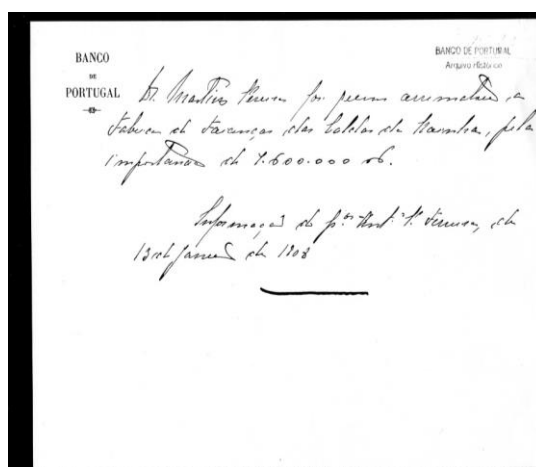 BANCO
DE
PORTUGAL
BANCO DE PORTUGAL
Arquivo Histórico
D. Martins Pereira foi quem arrematou a
Fabrica de Faianças das Caldas da Rainha, pela
importancia de 7.600.000 rs.
Informação de
13 de Janeiro de 1908